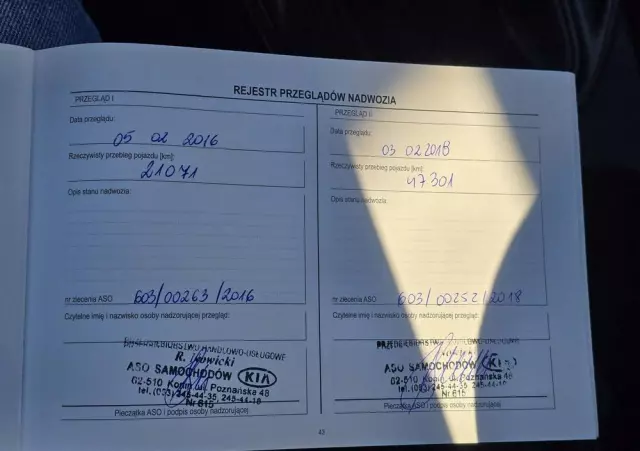 REJESTR PRZEGLĄDÓW NADWOZIA
PRZEGLĄD I
Data przeglądu:
05 02 2016
Rzeczywisty przebieg pojazdu [km]:
21071
Opis stanu nadwozia:
nr zlecenia ASO: 603/00263/2016
Czytelne imię i nazwisko osoby nadzorującej przegląd:
PRZEDSIĘBIORSTWO HANDLOWO-USŁUGOWE
ASO SAMOCHODÓW KIA
62-510 Konin, ul. Poznańska 48
tel. (063) 245-44-35, 245-44-18
Nr 615
Pieczątka ASO i podpis osoby nadzorującej
PRZEGLĄD II
Data przeglądu:
03 02 2018
Rzeczywisty przebieg pojazdu [km]:
47301
Opis stanu nadwozia
nr zlecenia ASO: 603/00252/2018
Czytelne imię i nazwisko osoby nadzorującej przegląd:
PRZEDSIĘBIORSTWO HANDLOWO-USŁUGOWE
ASO SAMOCHODÓW KIA
62-510 Konin, ul. Poznańska 48
tel. (063) 245-44-35, 245-44-18
Nr 615
Pieczątka ASO i podpis osoby nadzorującej
43